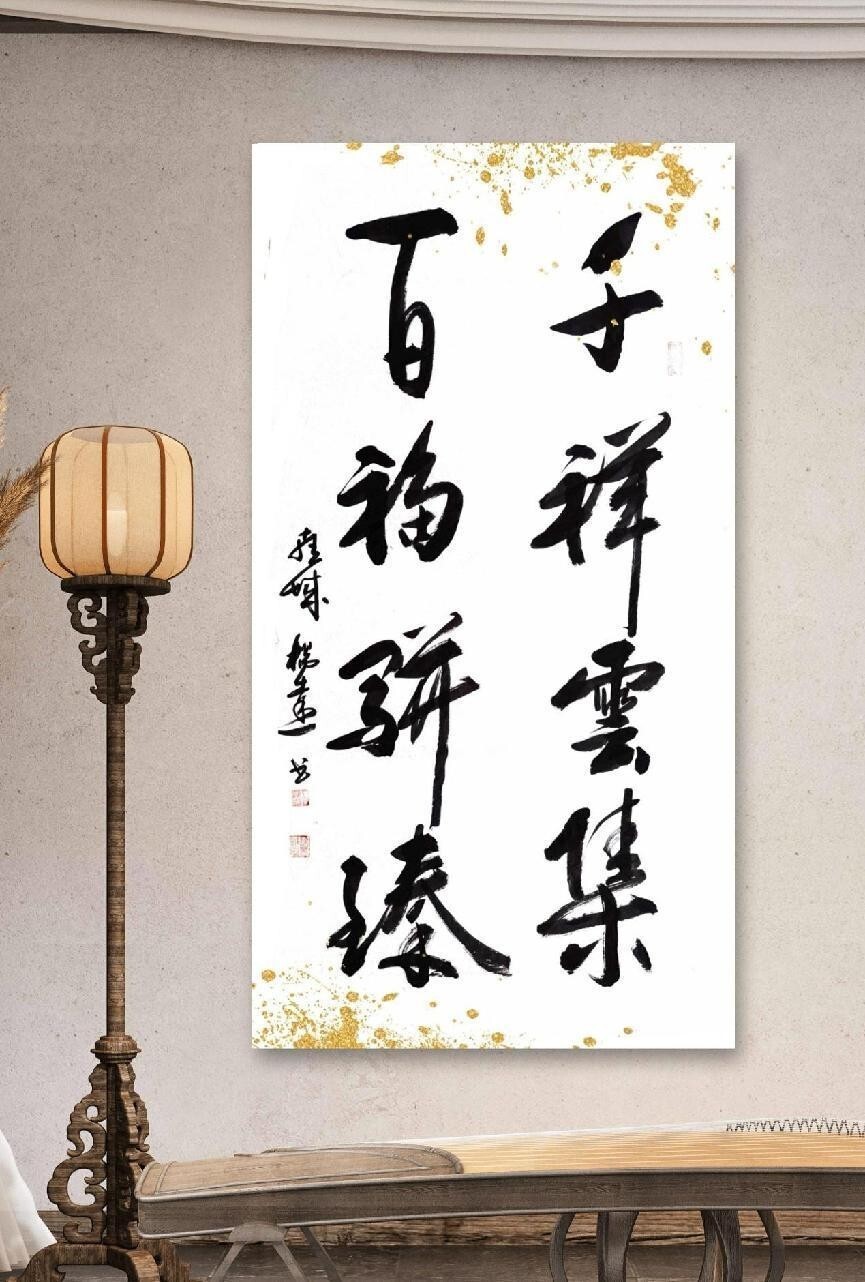 千祥雲集
百福駢臻